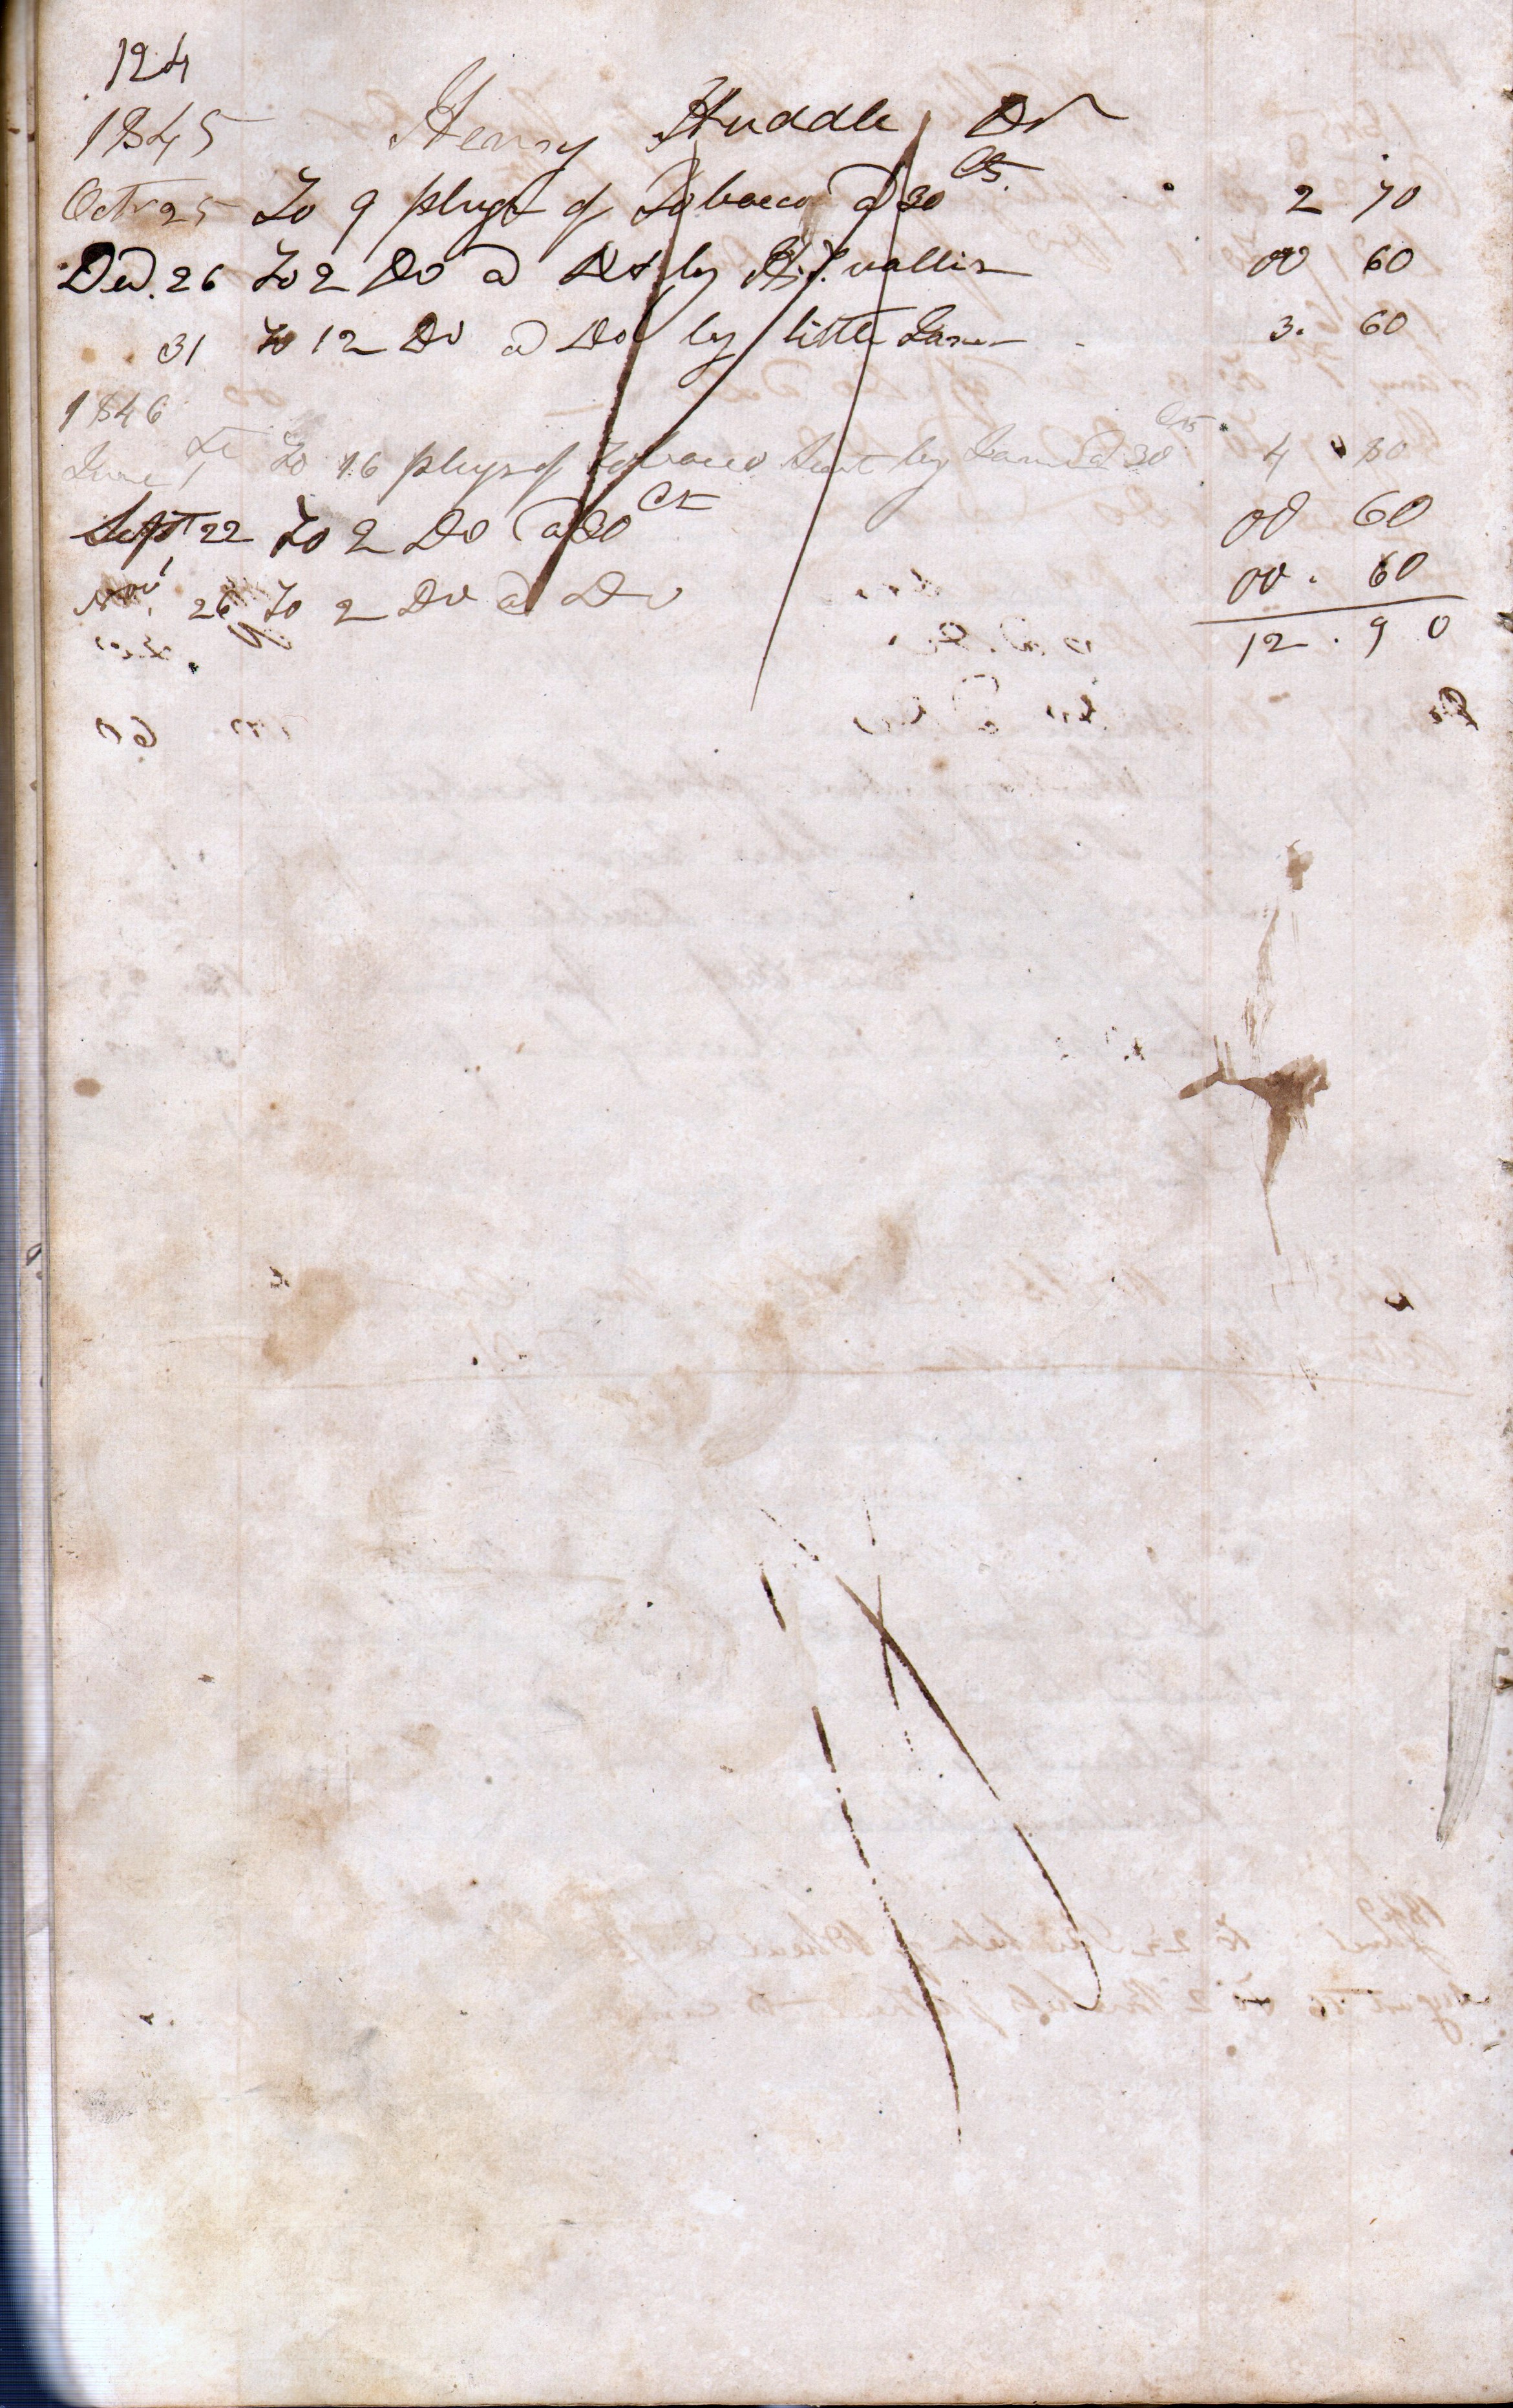 124
1845 Henry Huddle Dr
Octr 25 To 9 plugs of Tobacco @ 30 Cts. 2 70
Decr. 26 To 2 Do @ Do by vallis 00 60
31 To 12 Do @ Do by little James 3. 60
1846
June 1 st To 16 plugs of Tobacco Sent by James @ 30 Cts. 4 80
Sept 22 To 2 Do @ 30 Cts 00 60
Novr 26 To 2 Do @ Do 00. 60
12. 90